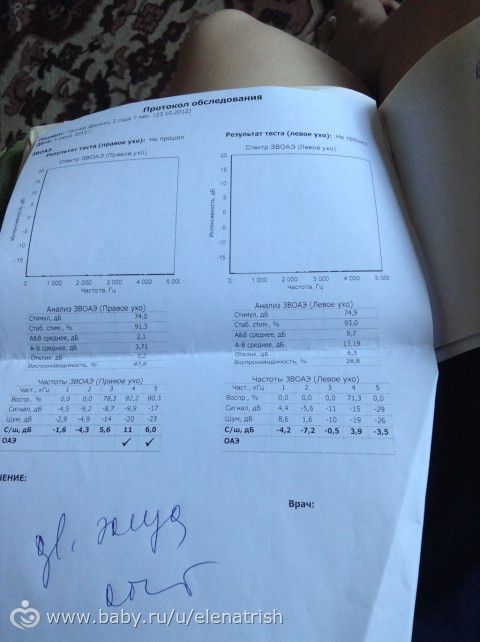 Протокол обследования
Пациент: Данил 2 года 7 мес. (23.10.2012)
Дата: 2015 г.
ЗВОАЭ
Результат теста (правое ухо): Не прошел
Результат теста (левое ухо): Не прошел
Спектр ЗВОАЭ (Правое ухо)
Спектр ЗВОАЭ (Левое ухо)
Интенсивность, дБ
20
15
10
5
0
-5
-10
-15
0 1 000 2 000 3 000 4 000 5 000
Частота, Гц
Интенсивность, дБ
20
15
10
5
0
-5
-10
-15
0 1 000 2 000 3 000 4 000 5 000
Частота, Гц
Анализ ЗВОАЭ (Правое ухо)
Стимул, дБ 74,0
Стаб. стим., % 91,3
A&B среднее, дБ 2,1
A-B среднее, дБ 3,71
Отклик, дБ 0,2
Воспроизводимость, % 47,8
Анализ ЗВОАЭ (Левое ухо)
Стимул, дБ 74,9
Стаб. стим., % 93,0
A&B среднее, дБ 9,7
A-B среднее, дБ 13,19
Отклик, дБ 6,3
Воспроизводимость, % 28,8
Частоты ЗВОАЭ (Правое ухо)
Част., кГц 1 2 3 4 5
Воспр., % 0,0 0,0 78,3 92,2 80,3
Сигнал, дБ -4,5 -9,2 -8,7 -9,9 -17
Шум, дБ -2,9 -4,9 -14 -20 -23
С/ш, дБ -1,6 -4,3 5,6 11 6,0
ОАЭ ✓ ✓
Частоты ЗВОАЭ (Левое ухо)
Част., кГц 1 2 3 4 5
Воспр., % 0,0 0,0 0,0 71,3 0,0
Сигнал, дБ 4,4 -5,6 -11 -15 -29
Шум, дБ 8,6 1,6 -10 -19 -26
С/ш, дБ -4,2 -7,2 -0,5 3,9 -3,5
ОАЭ
ЧЕНИЕ:
Врач:
www.baby.ru/u/elenatrish